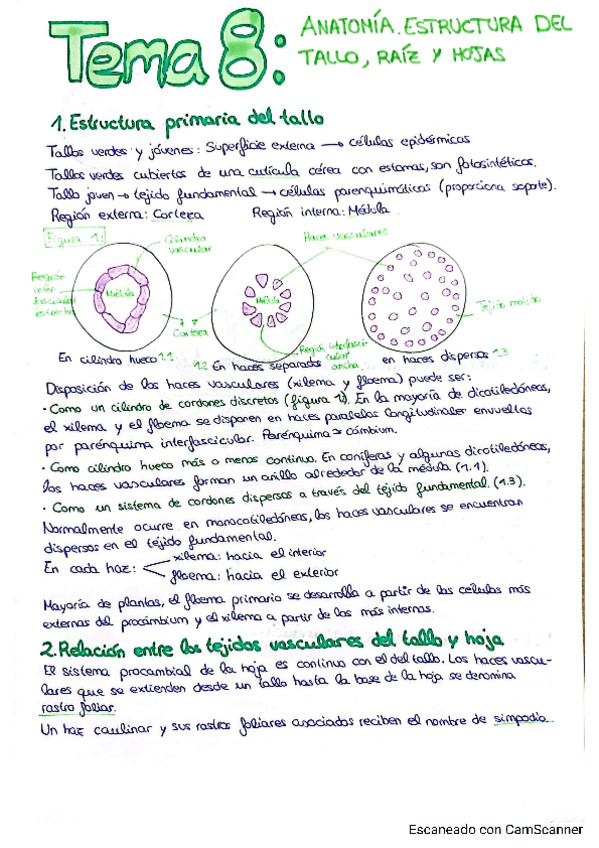 Tema 8:
ANATOMÍA. ESTRUCTURA DEL
TALLO, RAÍZ Y HOJAS
1. Estructura primaria del tallo
Tallos verdes y jóvenes: Superficie externa → células epidérmicas
Tallos verdes cubiertos de una cutícula cérea con estomas, son fotosintéticos.
Tallo joven → tejido fundamental → células parenquimáticas (proporciona soporte).
Región externa: Corteza Región interna: Médula
Figura 1:
Cilindro
vascular
Haces vasculares
Región
inter-
fascicular
estrecha
Médula
Médula
Tejido
Corteza
Región interfasci-
cular
ancha
En cilindro hueco 1.1
1.2 En haces separados
en haces dispersos 1.3
Disposición de los haces vasculares (xilema y floema) puede ser:
· Como un cilindro de cordones discretos (figura 1). En la mayoría de dicotiledóneas,
el xilema y el floema se disponen en haces paralelos longitudinales envueltos
por parénquima interfascicular. Parénquima → cámbium.
· Como cilindro hueco más o menos continuo. En coníferas y algunas dicotiledóneas,
los haces vasculares forman un anillo alrededor de la médula (1.1).
· Como un sistema de cordones dispersos a través del tejido fundamental. (1.3).
Normalmente ocurre en monocotiledóneas, los haces vasculares se encuentran
dispersos en el tejido fundamental.
En cada haz:
xilema: hacia el interior
floema: hacia el exterior
Mayoría de plantas, el floema primario se desarrolla a partir de las células más
externas del procámbium y el xilema a partir de las más internas.
2. Relación entre los tejidos vasculares del tallo y hoja
El sistema procambial de la hoja es continuo con el del tallo. Los haces vascu-
lares que se extienden desde un tallo hasta la base de la hoja se denomina
rastro foliar.
Un haz caulinar y sus rastros foliares asociados reciben el nombre de simpodio.
Escaneado con CamScanner